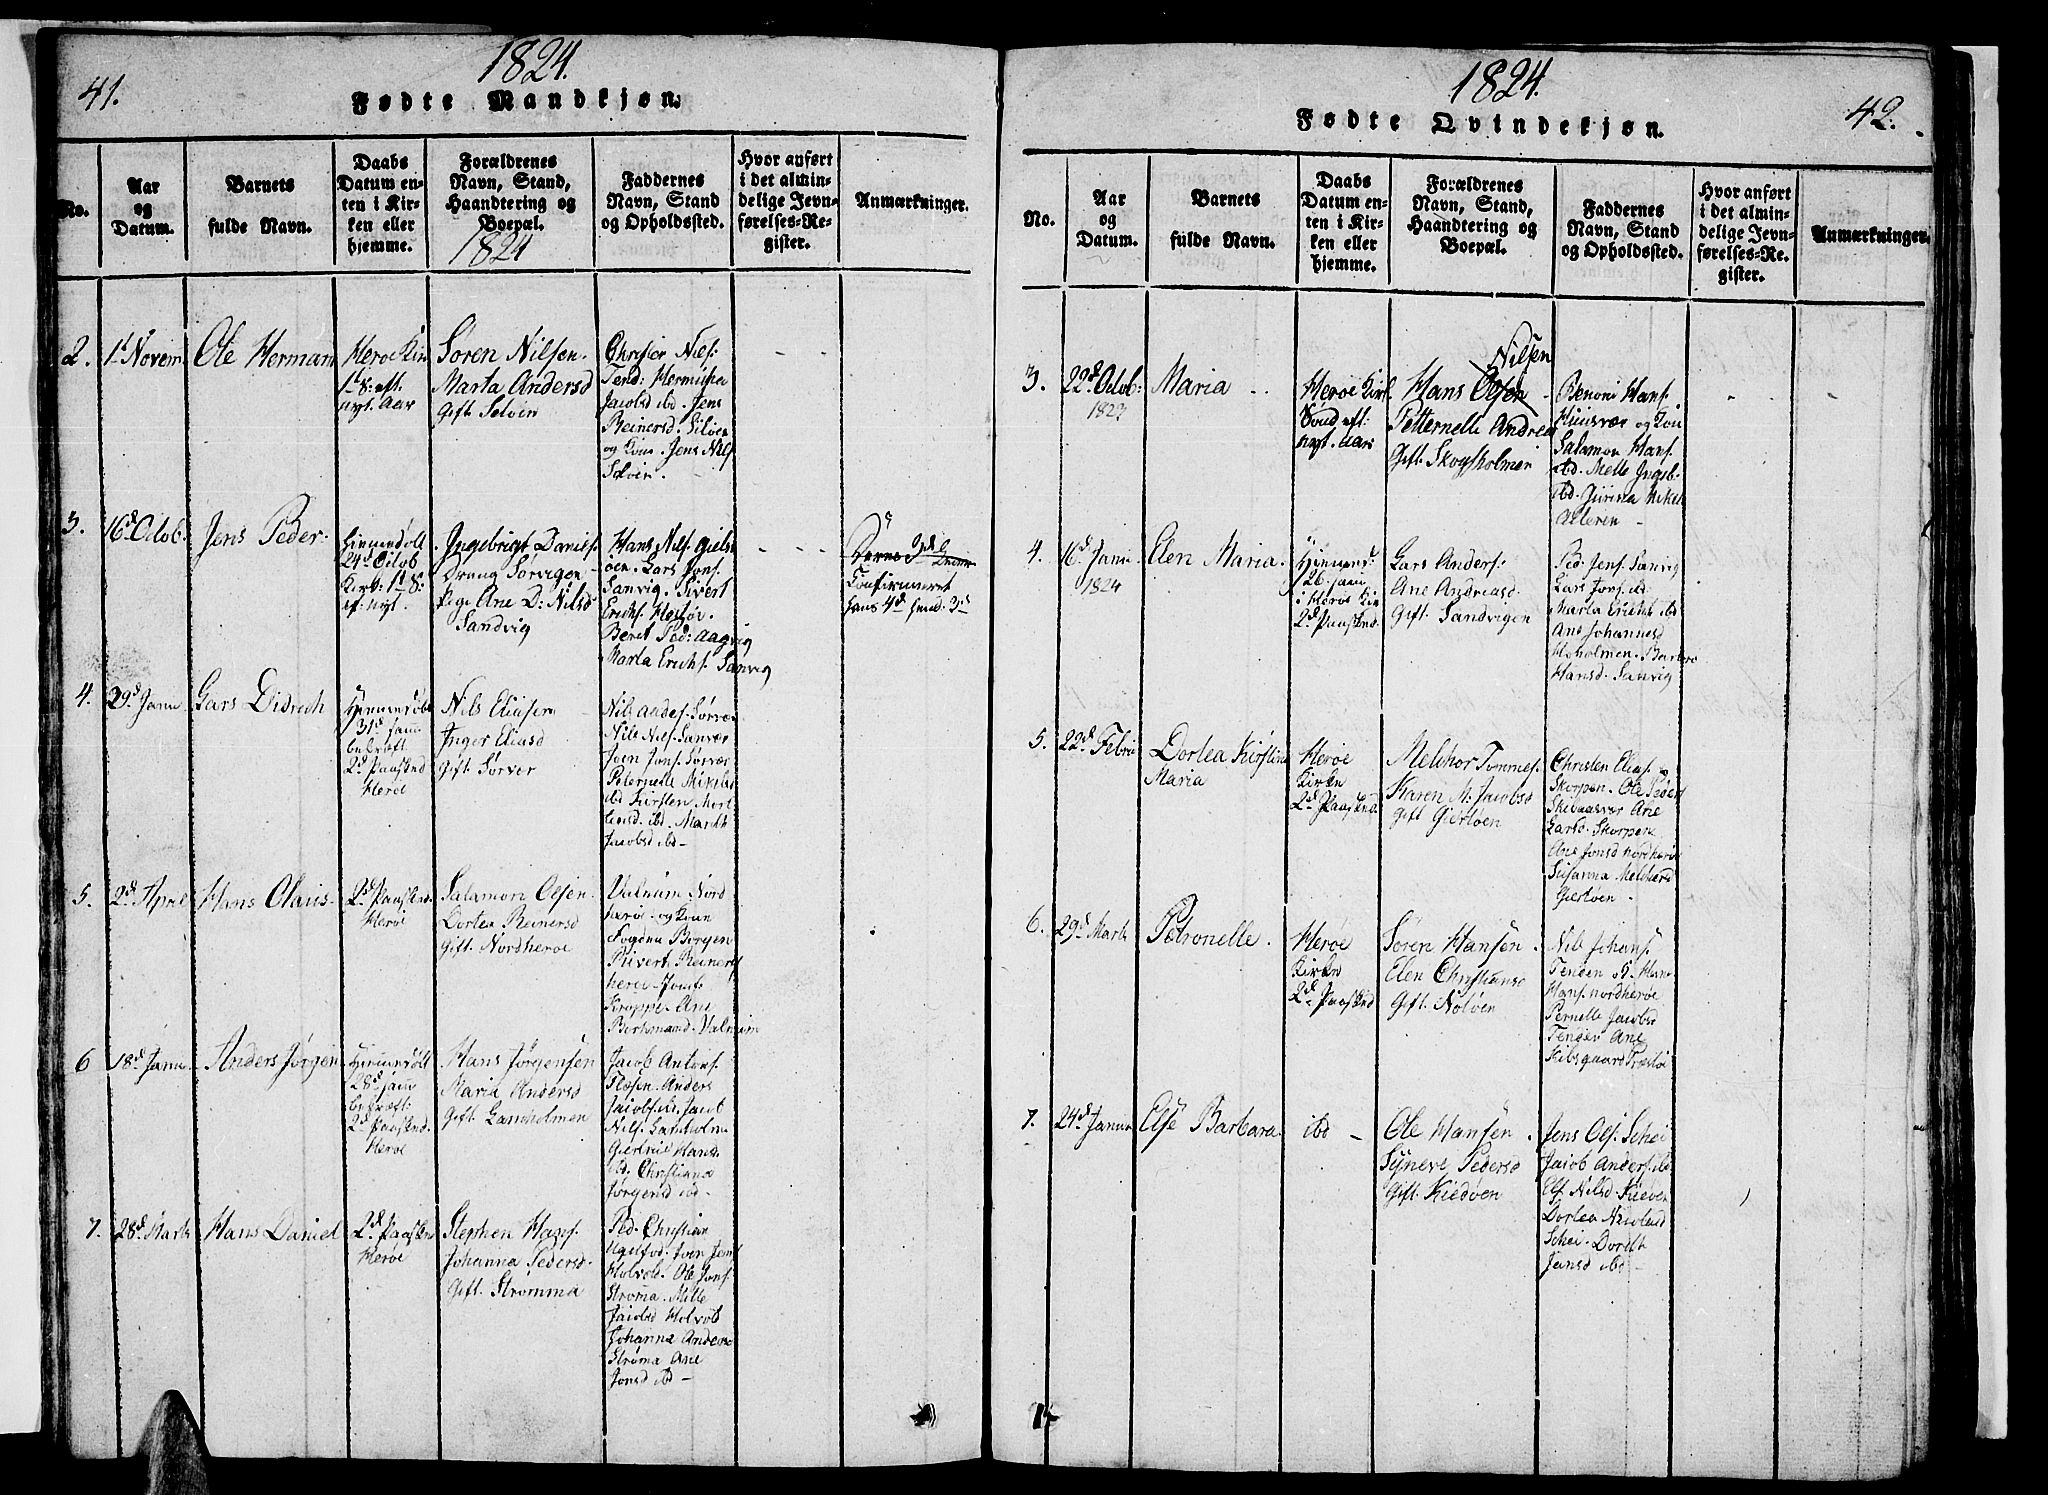 41.
1824.
Fødte Mandkjøn.
No.
Aar
og
Datum.
Barnets
fulde Navn.
Daabs
Datum en-
ten i Kir-
ken eller
hjemme.
Forældrenes
Navn, Stand,
Haandtering og
Boepæl.
1824
Faddernes
Navn, Stand
og Opholdssted.
Hvor anført
i det almin-
delige Jevn-
førelses-Re-
gister.
Anmærkninger.
2.
1d Novem.
Ole Herman
Herøe Kir
1d S: eft.
nyt. Aar
Søren Nilsen.
Marta Andersd
Gift. Selvøen
Christen Nils:
Tend: Hermina
Jacobsd ibd. Jens
Reinersd.
og Kone. Jens Nils
3.
16d Octob.
Jens Peder.
Hiemmedøbt
24d Octob
Kirk: 1d S:
ef: nyt.
Ingebrigt Daniels.
Dreng Sørvigen
Pige Ane D: Nilsd
Sandvig
Hans Nils.
øen. Lars Jons.
Sanvig. Sivert
Erichs.
Beret Ped: Aagvig
Marta Erichs. Sanvig
Confirmeret
4.
29d Janu
Lars Didrich
Hiemmedøbt
31d Janu
bekræft.
2d Paaskd
Herøe
Nils Eliasen
Inger Eliasd
Gift. Sørvær
Nils Anders. Sørvær
Nils Nils. Sanvær
Joen Jons. Sørvær
Peternelle Mikelsd
ibd. Kirsten Mor
tensd. ibd. Marith
Jacobsd ibd -
5.
2d April
Hans Olaus.
2d Paaskd.
Herøe
Salamon Olsen.
Dortea Reinersd
Gift. Nordherøe
Valnum Nord
herøe. og Kone
Sivert Reiners
herøe - Jomf.
Kroppe. Ane
Valnum
6
18d Janu
Anders Jørgen
Hiemmedøbt
28d Janu
bekræft:
2d Paaskd.
Herøe
Hans Jørgensen
Maria Andersd
Gift. Lamholmen
Jacob Antons.
Anders
Jacobs. ibd.
Nils. Lamholm
Giertrud Hansd.
ibd. Christiana
Jørgensd ibd -
7.
28d Marts
Hans Daniel
2d Paaskd
Herøe
Stephen Hans.
Johanna Pedersd.
Gift. Strømma
Ped. Christian
Joen Jens
Holvold. Ole Jons.
Strøma. Mille
Jacobsd Holvold
Johanna Andersd
Strøma Ane
Jonsd ibd -
1824.
Fødte Qvindekjøn.
42.
No.
Aar
og
Datum.
Barnets
fulde Navn.
Daabs
Datum en-
ten i Kir-
ken eller
hjemme.
Forældrenes
Navn, Stand,
Haandtering og
Boepæl.
Faddernes
Navn, Stand
og Opholdssted.
Hvor anført
i det almin-
delige Jevn-
førelses-Re-
gister.
Anmærkninger.
3.
22d Octob:
1823
Maria
Herøe Kirk.
Sønd eft:
nyt. Aars
Nilsen
Hans Olsen
Petternelle Andrea
Gift. Skogsholmen
Benoni Hans.
og Kone
Salamon Hans.
ibd. Melle Ingeb.
ibd. Mikel
4.
16d Janu
1824
Elen Maria.
Hiemmed:
26. Janu
i Herøe Kir
2d Paaskd.
Lars Anders:
Ane Andreasd.
Gift. Sandvigen
Ped. Jens. Sanvig
Lars Jons. ibd.
Marta Erichs ibd
Ane Johannesd
Hoholmen. Barbro
Hansd. Sanvig
5.
22d Febru
Dortea Kirstina
Maria
Herøe
Kirke
2d Paaskd
Melchor Tommes.
Karen M: Jacobsd
Gift Gierløen
Christen Elias.
Skorpen. Ole Peders
Ane
Larsd. Skorpen
Ane Jonsd Nordherøe
Susanna Melchersd
Gierløen -
6.
29d Marts
Petronelle.
Herøe
Kirke
2d Paaskd
Søren Hansen
Elen Christiansd
Gift. Noløen
Nils Johans.
Tenden og Hans
Hans. Nordherøe
Pernelle Jacobsd
Ane
Kibsgaard
7.
24d Janua
Else Barbara.
ibd -
Ole Hansen.
Syneve Pedersd
Gift. Kiedøen
Jens Ols. Schei
Jacob Anders. ibd
Nilsd
Dortea
Schei. Dordt
Jensd ibd -